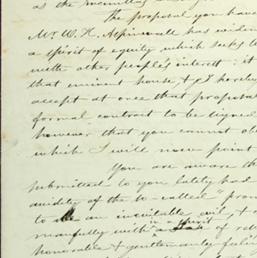 as the
The proposal you have
Mr. W. H. Aspinwall has
a spirit of equity which seeks to
with other people's interest: it
that eminent house, & I hereby
accept at once that proposal
formal contract to be signed
however that you cannot
which I will now point
You are aware
submitted to you lately had
avidity of the so-called
to be an inevitable evil, &
manfully with a
honorable & gentlemanly